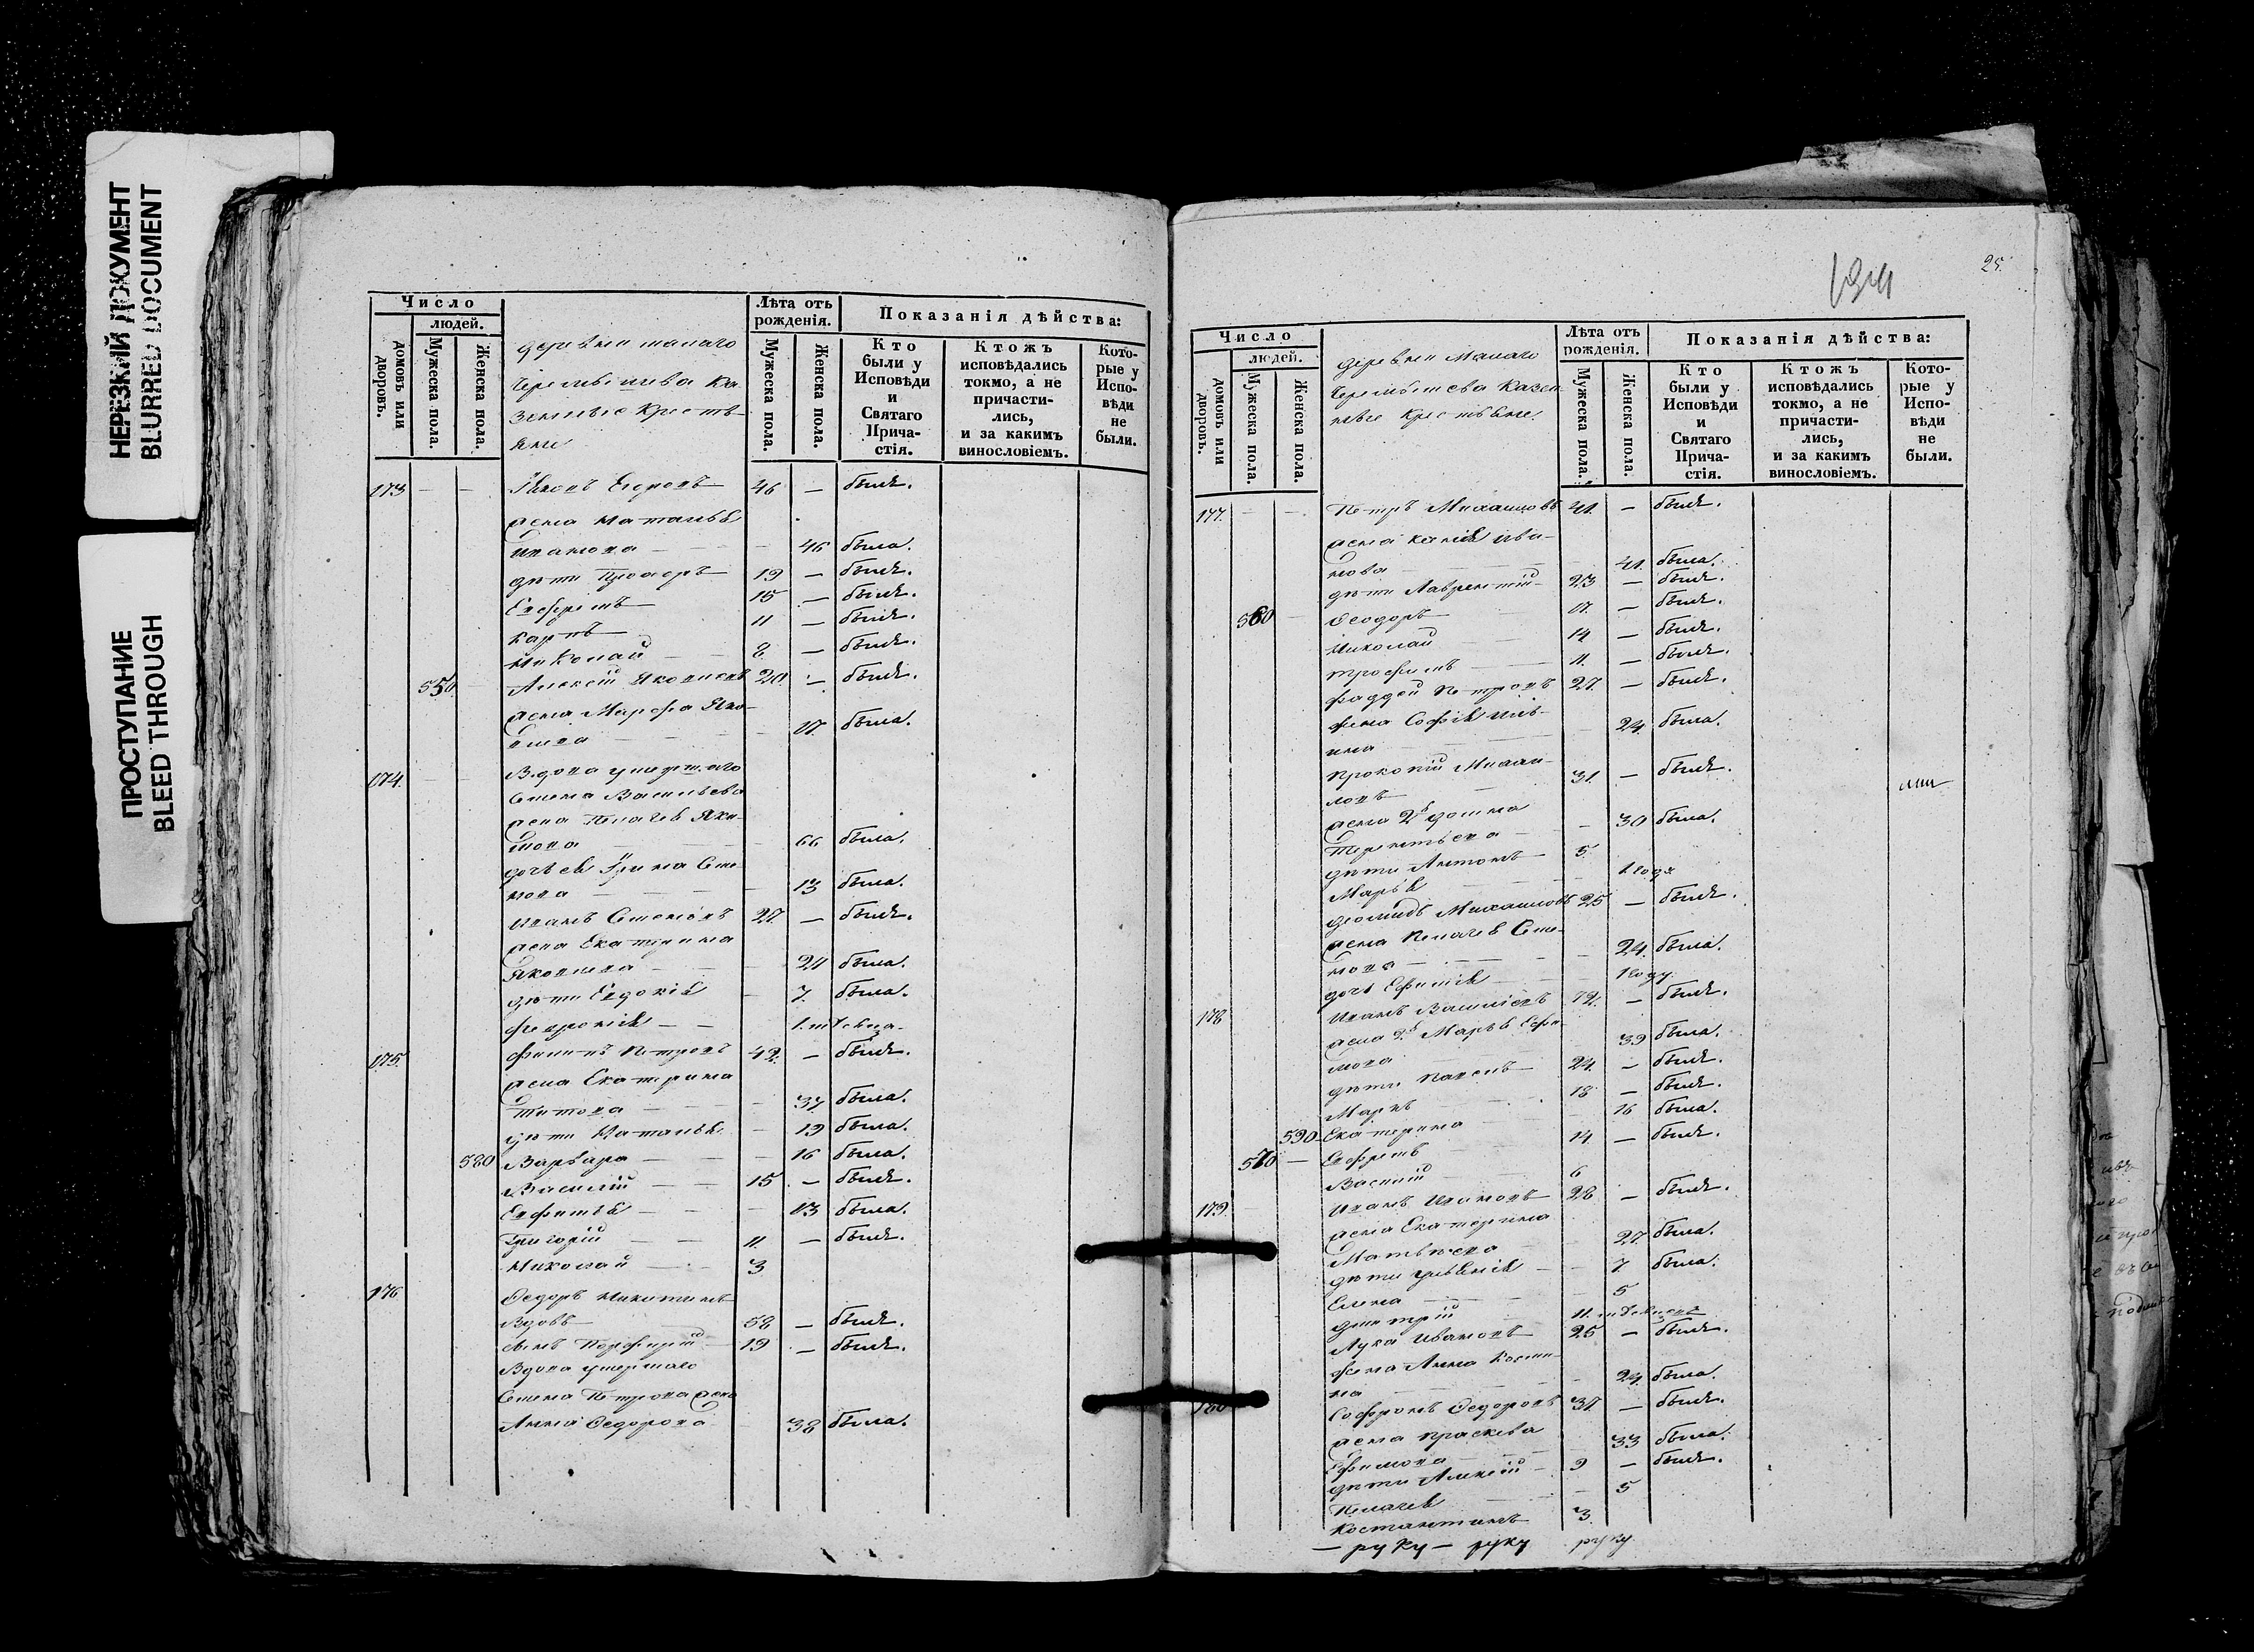 НЕРЕЗКИЙ ДОКУМЕНТ
BLURRED DOCUMENT
ПРОСТУПАНИЕ
BLEED THROUGH
Число
людей.
домовъ или дворовъ.
Мужеска пола.
Женска пола.
деревни малаго
Ка-
зенные Крестья-
яне
Лѣта отъ рожденія.
Мужеска пола.
Женска пола.
Показанія дѣйства:
Кто были у Исповѣди и Святаго Прича-стія.
Ктожъ исповѣдались токмо, а не причасти-лись, и за какимъ винословіемъ.
Кото-рые у Испо-вѣди не были.
173 — — Егоровъ 46 — былъ.
жена Наталья
Иванова — 46 была.
дѣти 19 — былъ.
Ефремъ 15 — былъ.
Карпъ 11 — былъ.
Николай 8 — былъ.
550 Алексѣй Яковлевъ 20 — былъ.
жена Марфа Яко-
влева 17. была.
174. Вдова умершаго
Семена Васильева
жена Пелагея
66 была.
дочь ея Ирина Семе-
нова — 13 была.
Иванъ Семеновъ 27. — былъ.
жена Екатерина
Яковлева — 24 была.
дѣти Евдокія — 7. была.
Февронія — —
175. Филипъ Петровъ 42. — былъ.
жена Екатерина
Титова — 37 была.
дѣти Наталья — 19 была.
580 Варвара — 16 была.
Василій — 15 — былъ.
Евфимія — 13 была.
Григорій — 11. — былъ.
Николай — 3
176 Ѳедоръ Никитинъ
Вдовъ 58 — былъ.
сынъ Порфирій 19 — былъ.
Вдова умершаго
Семена Петрова жена
Анна Ѳедорова — 38 была.
194
25.
Число
людей.
домовъ или дворовъ.
Мужеска пола.
Женска пола.
деревни Малаго
Казен-
ные Крестьяне
Лѣта отъ рожденія.
Мужеска пола.
Женска пола.
Показанія дѣйства:
Кто были у Исповѣди и Святаго Прича-стія.
Ктожъ исповѣдались токмо, а не причасти-лись, и за какимъ винословіемъ.
Кото-рые у Испо-вѣди не были.
177. Петръ Михайловъ 41. — былъ.
жена Ксенія Ива-
нова 41. была.
дѣти Лаврентій 23 — былъ.
560 Ѳеодоръ 17. — былъ.
Николай 14 — былъ.
Трофимъ 11. — былъ.
Фаддей Петровъ 27. — былъ.
жена Софія Иль-
ина 24. была.
Прокопій Михай-
ловъ 31. — былъ.
жена 2я
Терентьева — 30 была.
дѣти Антонъ 5.
Марья 1 года
Діомидъ Михайловъ 25 — былъ.
жена Пелагея Семе-
нова 24. была.
дочь Ефимія 1 году.
178 Иванъ Васильевъ 72. — былъ.
жена 2я Марья Ефи-
мова 39 была.
дѣти Павелъ 24. — былъ.
Маркъ 18 — былъ.
590 Екатерина 16 была.
570 — Ефремъ 14 — былъ.
Василій 6
179. Иванъ 28 — былъ.
жена Екатерина
Матвѣева 27. была.
дѣти Ульянія 7 была.
Елена 5
Дмитрій
Лука Ивановъ 25 — былъ.
жена Анна
на 24. была.
180 Софронъ Ѳедоровъ 37. — былъ.
жена Праскева
Ефимова 33 была.
дѣти Алексѣй 9 — былъ.
Пелагея 5
Костантинъ 3.
— руку — руку руку